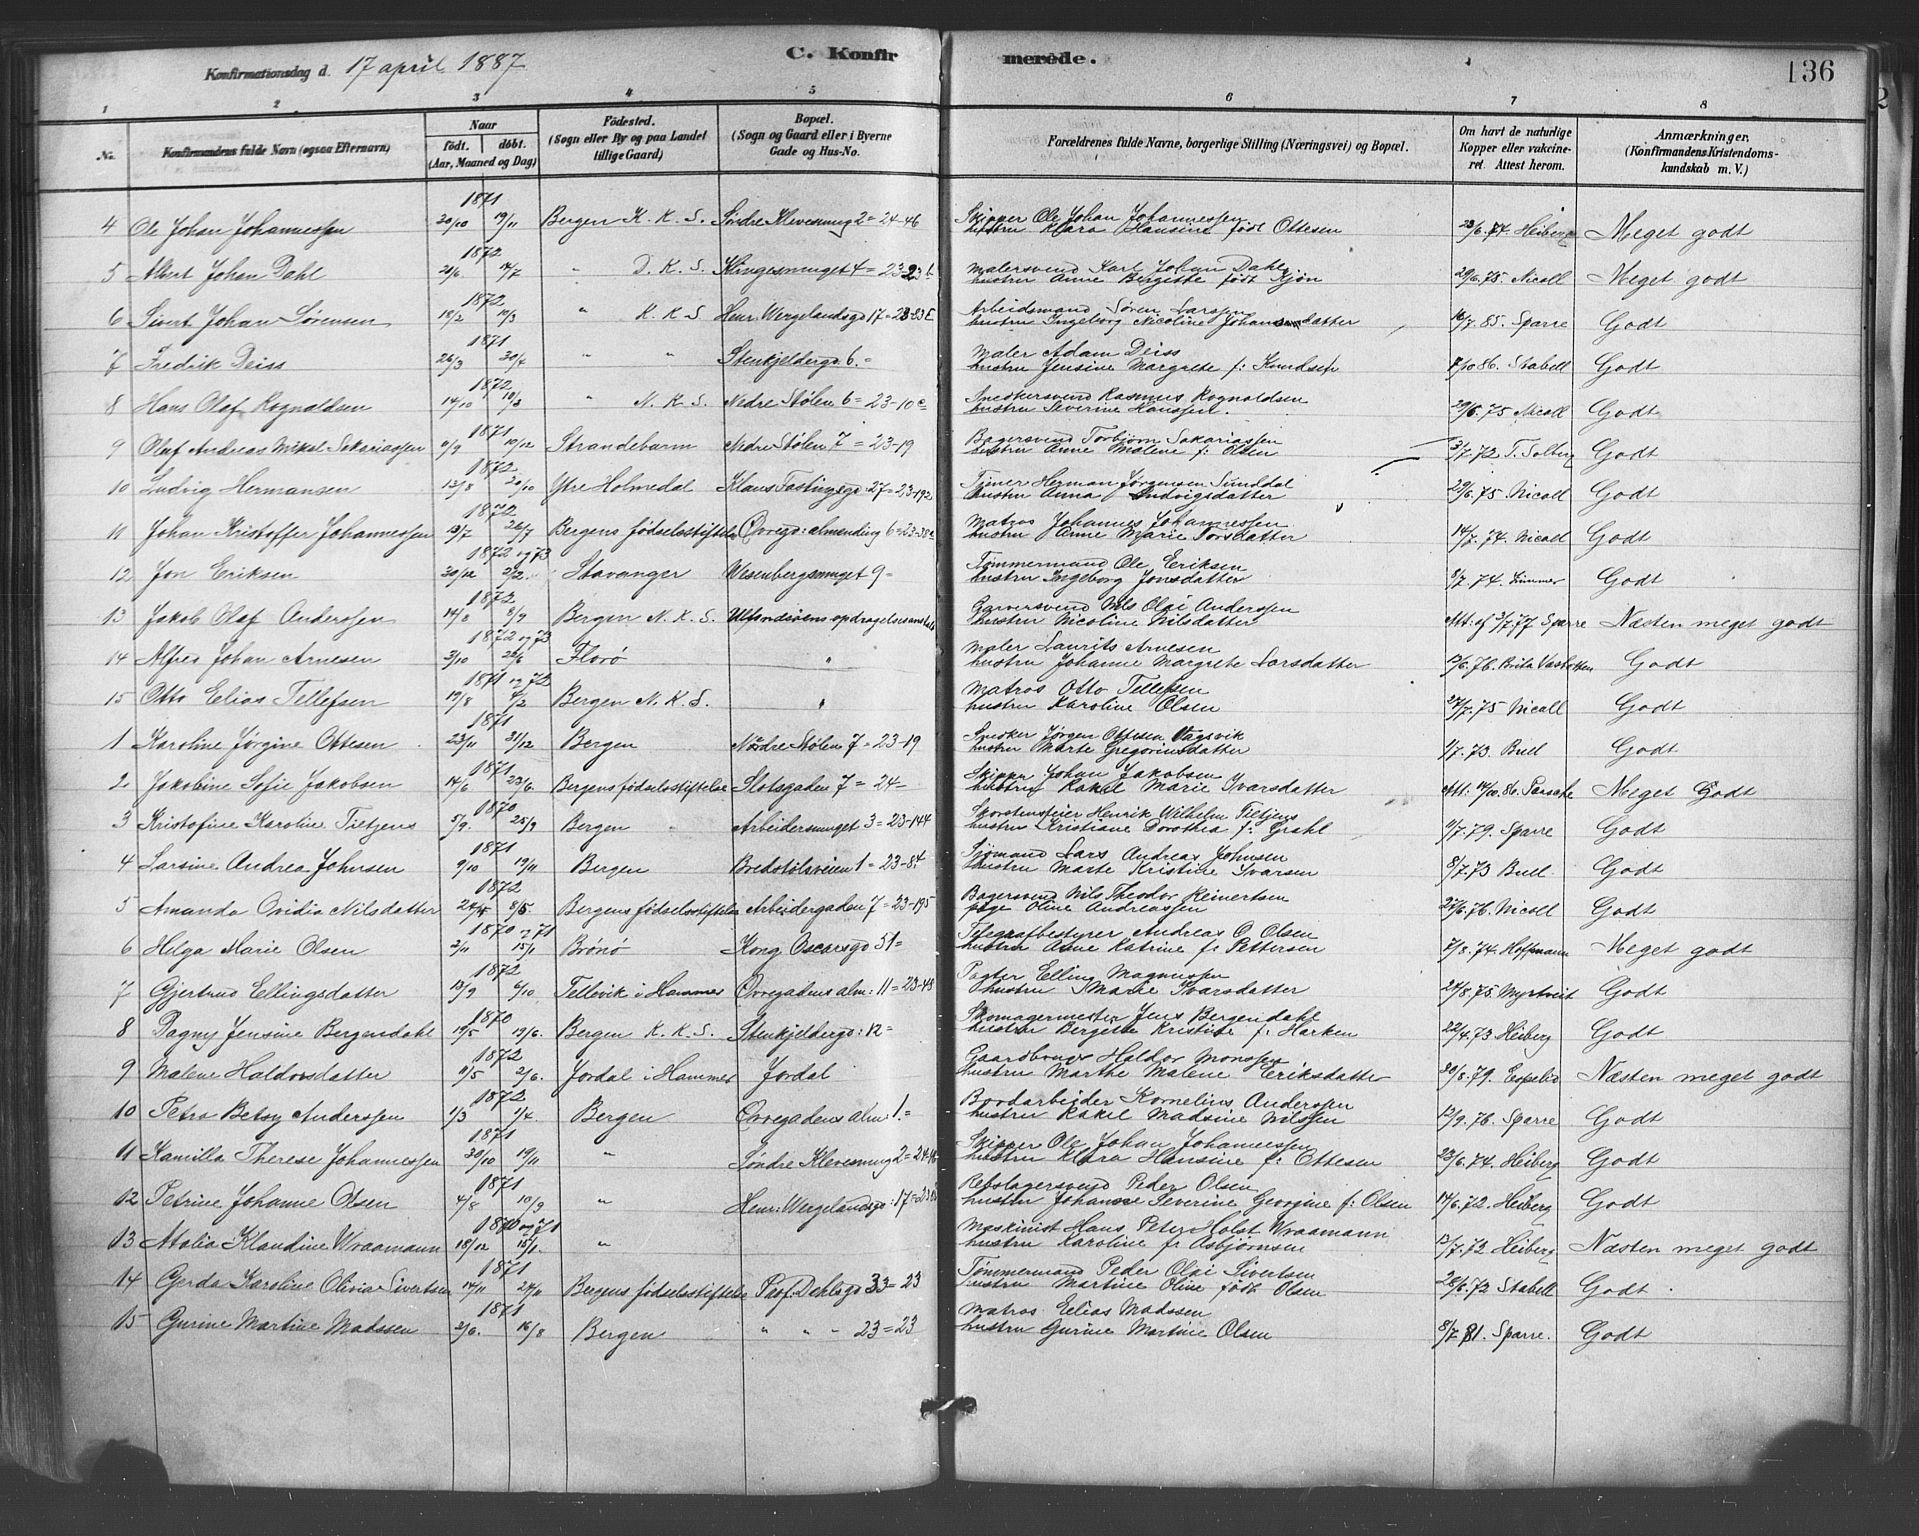 Konfirmationsdag d. 17 april 1887 C. Konfirmerede. 136
1 2 3 4 5 6 7 8
No. Konfirmandens fulde Navn (ogsaa Efternavn) Naar født. døbt. (Aar, Maaned og Dag) Fødested. (Sogn eller By og paa Landet tillige Gaard) Bopæl. (Sogn og Gaard eller i Byerne Gade og Hus-No. Forældrenes fulde Navne, borgerlige Stilling (Næringsvei) og Bopæl. Om havt de naturlige Kopper eller vaccineret. Attest herom. Anmærkninger, (Konfirmandens Kristendomskundskab m. V.)
4 Ole Johan Johannessen 1871 30/10 19/11 Bergen K. K. S. Søndre Klevesmug 2 = 24-46 Skipper Ole Johan Johannessen hustru Klara Hansine født Ottesen 23/6.74 Heiberg Meget godt
5 Albert Johan Dahl 1872 21/6 14/7 " D. K. S. Klingesmuget 4 = 23- Malersvend Karl Johan Dahl hustru Anne Bergitte født Kjøn 29/6.75. Nicoll Meget godt
6 Sivert Johan Sørensen 1872 18/2 10/3 " K. K. S Henr. Wergelandsgd 17 = Arbeidsmand Søren Larssen hustru Ingeborg Nicoline Johansdatter 16/7.85. Sparre Godt
7 Fredrik Deiss 1871 26/3 30/4 " " Stenkjelderg. 6. = Maler Adam Deiss hustru Jensine Margrete f: Knudsen 7/10 86. Stabell Godt
8 Hans Olaf Rognaldsen 1872 14/10 10/3 " N. K. S. Nedre Stølen 6 = 23-10 c Snedkersvend Rasmus Rognaldsen hustru Severine Hanssen. 29/6.75 Nicoll Godt
9 Olaf Andreas Mikal Sakariassen 1871 9/9 10/12 Strandebarm Nedre Stølen 7 = 23-19 Bagersvend Torbjørn Sakariassen hustru Anne Malene f: Olsen 3/7.72 T. Solberg Godt
10 Ludvig Hermansen 1872 13/8 20/10 Ytre Holmedal Klaus Fastingsgd. 27 = 23-192 Herman Jørgensen Sunddal hustru Anna Ludvigsdatter 29/6.75. Nicoll Godt
11 Johan Kristoffer Johannessen 1872 19/7 26/7 Bergens fødselsstiftelse Øvregd: almending 6 = 23-38 Matros Johannes Johannessen hustru Anne Marie Torsdatter 14/7.74. Nicoll Godt
12 Jon Eriksen 1872 og 73 30/12 2/2. Stavanger Wesenbergsmuget 9 = Tømmermand Ole Eriksen hustru Ingeborg Jonsdatter 9/7.74. Godt
13 Jakob Olaf Anderssen 1872 14/8 8/9 Bergen N. K. S. Ulfsnesøens opdragelsesanstalt Garversvend Nils Olai Anderssen hustru Nicoline Nilsdatter Att. af 3/7.77 Sparre Næsten meget godt
14 Alfred Johan Arnesen 1872 og 73 3/10 26/6 Florø " Maler Laurits Arnesen hustru Johanne Margrete Larsdatter 13/6.76. Godt
15 Otto Elias Tellefsen 1871 og 72 19/8 4/2 Bergen N. K. S. " Matros Otto Tellefsen hustru Karoline Olsen 27/7.75 Nicoll Godt
1 Karoline Jørgine Ottesen 1871 23/11 31/12 Bergen Nedre Stølen 7 = 23-19 Snedker Jørgen Ottesen Vågsvik hustru Marte Gregoriusdatter 1/7.73. Bull Godt
2 Jakobine Sofie Jakobsen 1871 14/6 23/6 Bergens fødselsstiftelse Slotsgaden 7 = 24 = Skipper Johan Jakobsen hustru Rakel Marie Ivarsdatter Att: 14/10.86. Meget Godt
3 Kristofine Karoline Tietjens 1870 5/9. 25/9 Bergen " Arbeidersmuget 3 = 23-144 Skorstensfeier Henrik Wilhelm Tietjens hustru Kristiane Dorothea f: Grahl 9/7.79. Sparre Godt
4 Larsine Andrea Johnsen 1871 9/10 19/11 Bergen Bredstølsveien 1 = 23-84 Sjømand Lars Andreas Johnsen hustru Marte Kristine Ivarsen 8/7.73 Bull Godt
5 Amanda Ovidia Nilsdatter 1872 8/5. Bergens fødselsstiftelse Arbeidergaden 7 = 23-195 Bagersvend Nils Theodor Reinertsen pige Oline Andreassen 27/6.76. Nicoll Godt
6 Helga Marie Olsen 1870 og 71 2/11 15/1 Brønø Kong Oscarsgd 51 = Telegrafbestyrer Andreas O. Olsen hustru Anne Katrine f: Pettersen 7/8.74. Hoffmann Meget godt
7 Gjertrud Ellingsdatter 1872 13/9 6/10 Tellevik i Hammer Øvregadens alm: 11 = 23-48 Pagter Elling Magnussen hustru Marie Ivarsdatter 24/8.75. Myrtveit Godt
8 Dagny Jensine Bergendahl 1870 19/5 19/6. Bergen K. K. S. Stenkjelderg: 12 = Skomagermester Jens Bergendahl hustru Bergitte Kristine f: Harken 22/4.73 Heiberg Godt
9 Malene Haldorsdatter 1872 9/5 2/6. Jordal i Hammer Jordal Gaardbruger Haldor Monssen hustru Marthe Malene Eriksdatter 30/8.79. Espelid Næsten meget godt
10 Petra Betsy Anderssen 1872 1/3 1/4 Bergen Øvregadens alm: 1. = Bordarbeider Kornelius Anderssen hustru Rakel Madsine Nilssen 13/9.76. Sparre Godt
11 Kamilla Therese Johannessen 1871 30/10 19/11 " Søndre Klevesmug 2 = 24-46 Skipper Ole Johan Johannessen hustru Klara Hansine f: Ottesen 23/6.74. Heiberg Godt
12 Petrine Johanne Olsen 1871 4/8 10/9 " Henr: Wergelandsgd: 17 = Rebslagersvend Peder Olsen hustru Johanne Severine Georgine f: Olsen 14/6.72. Heiberg Godt
13 Atalia Klaudine Wraamann 1870 og 71 18/12 15/1. " Maskinist Hans Peter Holst Wraamann hustru Karoline f: Asbjørnsen 13/7.72 Heiberg Næsten meget godt
14 Gerda Karoline Olivia Sivertsen 1871 14/11 24/11 Bergens fødselsstiftelse Prof. Dahlsgd 33 = 23 Tømmermand Peder Olai Sivertsen hustru Martine Oline født Olsen 28/6.72 Stabell Godt.
15 Gurine Martine Madssen 1871 2/6. 16/8 Bergen " " 23 = 23 Matros Elias Madssen hustru Gurine Martine Olsen 8/7 81. Sparre. Godt